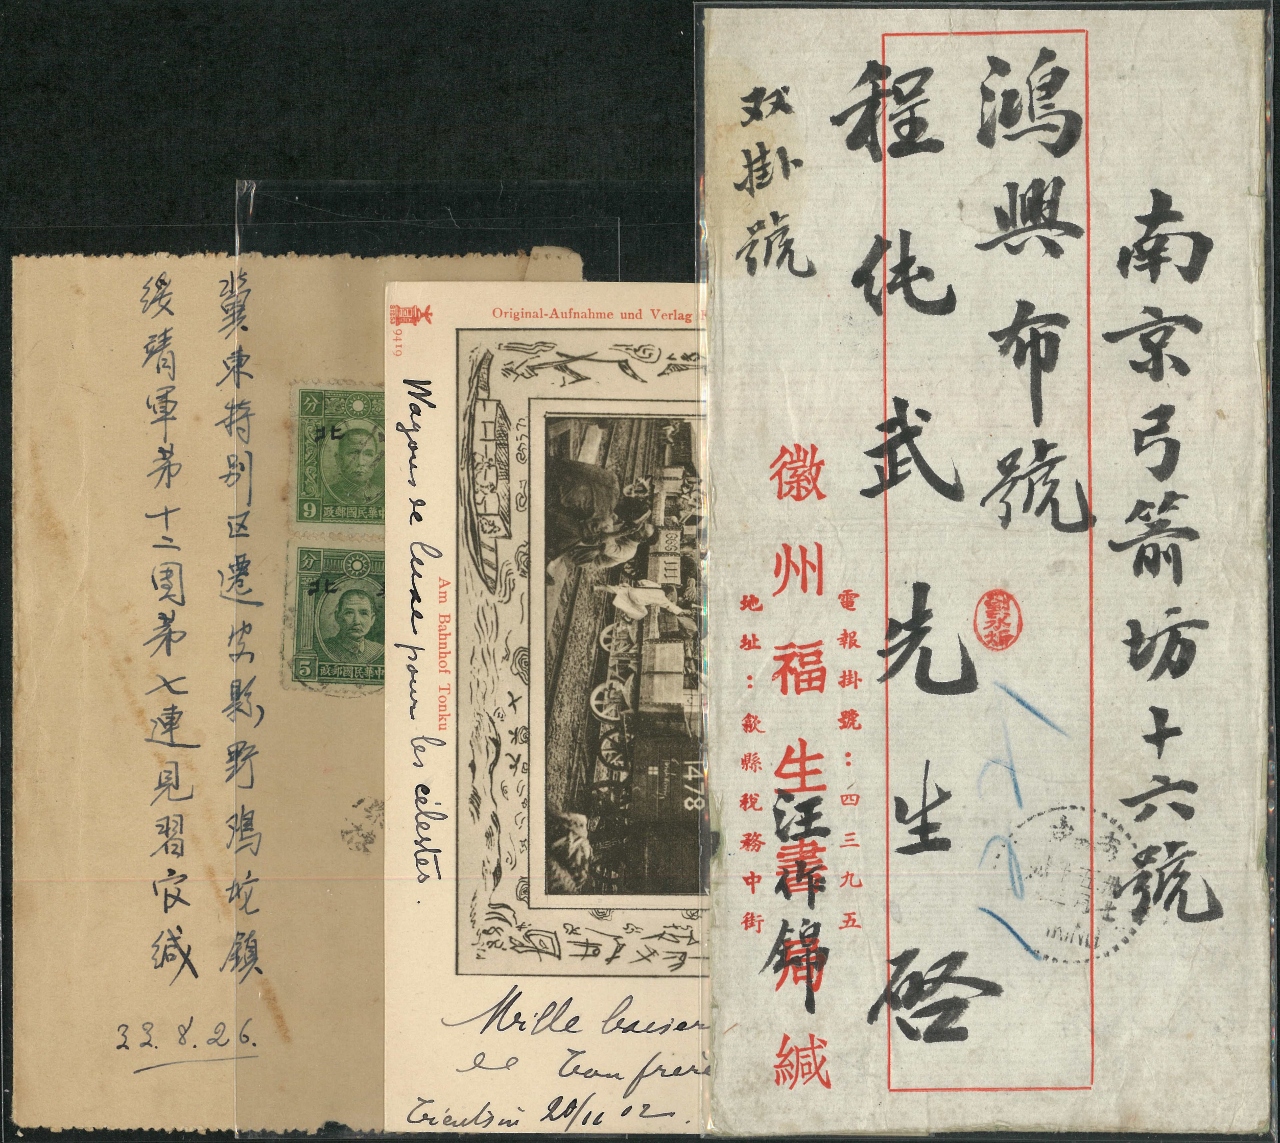 南京弓箭坊十六號
鴻興布號
程純武先生啓
双掛號
徽州福生書局緘
電報掛號：四三九五
地址：歙縣稅務中街
汪作錦
Original-Aufnahme und Verlag
9419
Am Bahnhof Tonku
Wagons de luxe pour les célestes.
1478
Mille baiser
de ton frère
Tientsin 20/11 02.
冀東特別区遷安縣野鸡坨鎮
綏靖軍第十二團第七連見習官緘
33.8.26.
分
北
9
政郵國民華中
分
北
5
政郵國民華中